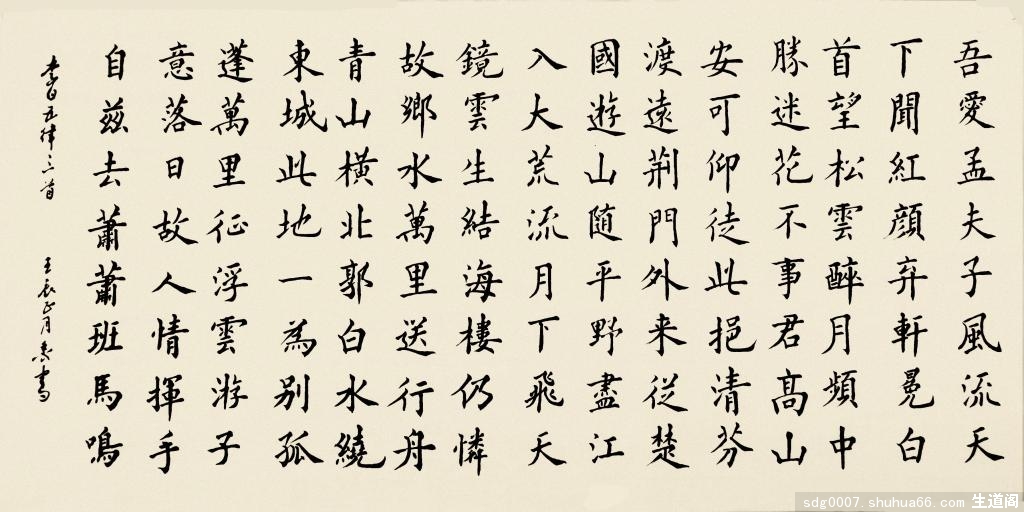 吾愛孟夫子風流天
下聞紅顏弃軒冕白
首望松雲醉月頻中
勝迷花不事君高山
安可仰徒此挹清芬
渡遠荆門外来從楚
國遊山隨平野盡江
入大荒流月下飛天
鏡雲生結海樓仍憐
故鄉水萬里送行舟
青山橫北郭白水繞
東城此地一為别孤
蓬萬里征浮雲游子
意落日故人情揮手
自茲去蕭蕭班馬鳴
李白五律三首 壬辰正月 書
sdg0007.shuhua66.com 生道阁